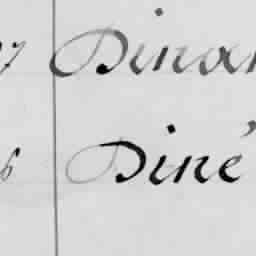 Dinan
Diné